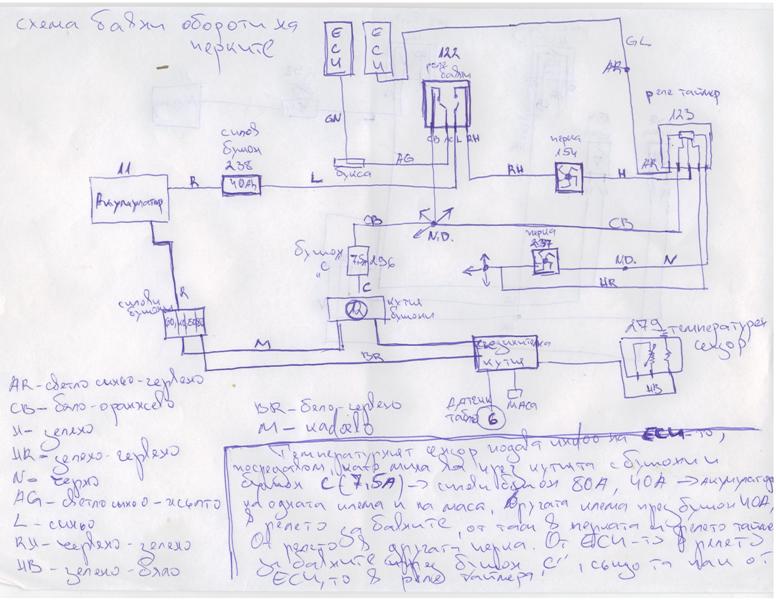 схема бавни обороти на
перките
ECU
ECU
GL
122
реле
бавни
AR
реле таймер
123
GN
силов
бушон
238
40Ah
CB AG L RH
букса
AG
перка
154
AR
11
Акумулатор
R
L
RH
H
CB
N.D.
CB
перка
237
N.D.
N
HR
бушон
"C"
7,5
236
C
силови
бушони
R
12
кутия
бушони
M
BR
съединителна
кутия
279
температурен
сензор
HB
датчик
табло
6
маса
AR – светло синьо-червено
CB – бяло-оранжево
H – зелено
HR – зелено-червено
N – черно
AG – светло синьо-жълто
L – синьо
RH – червено-зелено
HB – зелено-бяло
BR – бяло-червено
M – кафяво
Температурният сензор подава инфо на ECU-то,
посредством, като мина на през кутията с бушони и
бушон C (7,5A) → силови бушон 80A, 40A → Акумулатор
на едната клема и на маса, Другата клема през бушон 40A,
в релето за бавните, от там в перката и релето таймер
От релето в другата перка. От ECU-то в релето
за бавните и през бушон "C", също та към от
ECU, то в реле таймера,